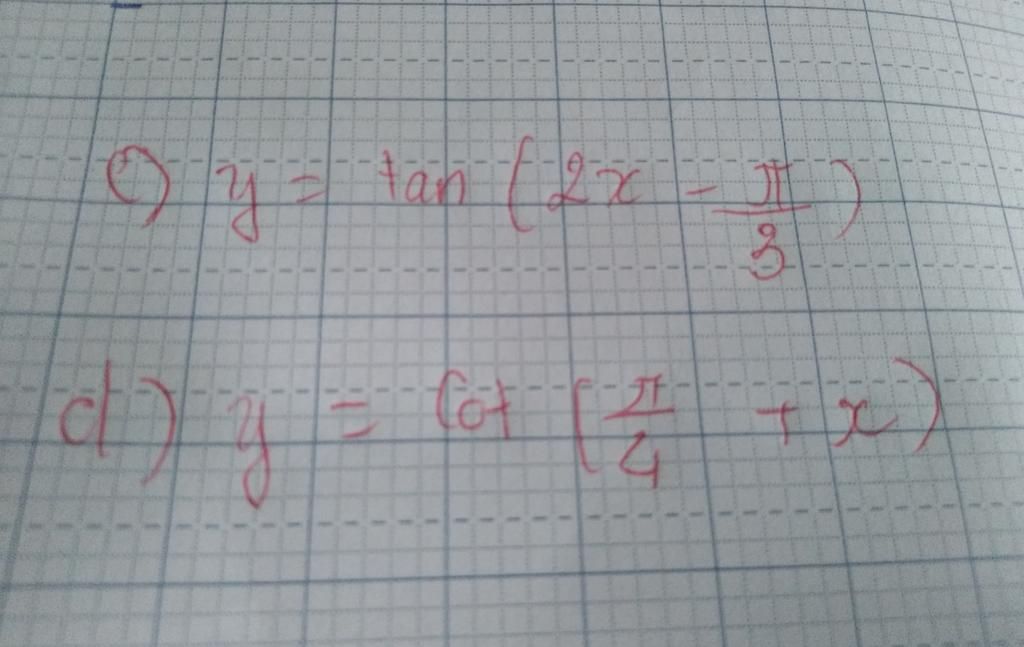 c) y = tan (2x - π/3)
d) y = cot (π/4 + x)